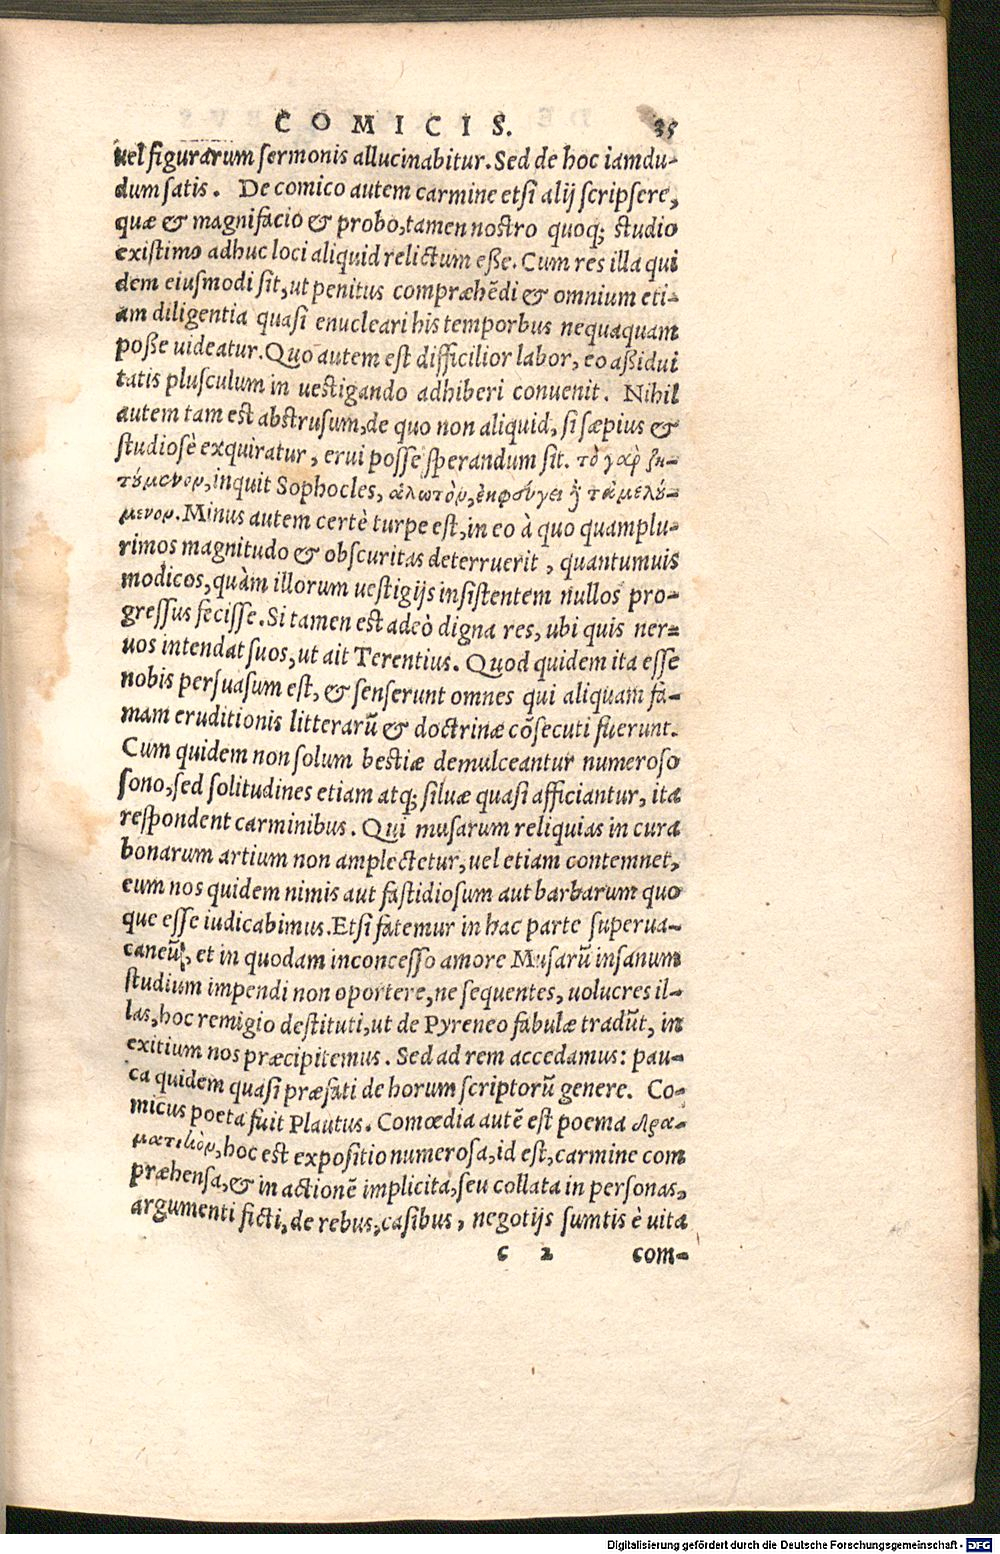 COMICIS. 35
uel figurarum sermonis allucinabitur. Sed de hoc iamdu-
dum satis. De comico autem carmine etsi alij scripsere,
quæ & magnifacio & probo, tamen nostro quoq; studio
existimo adhuc loci aliquid relictum eße. Cum res illa qui
dem eiusmodi sit, ut penitus compræhēdi & omnium eti-
am diligentia quasi enucleari his temporbus nequaquam
poße uideatur. Quo autem est difficilior labor, eo aßidui
tatis plusculum in uestigando adhiberi conuenit. Nihil
autem tam est abstrusum, de quo non aliquid, si sæpius &
studiosè exquiratur, erui posse sperandum sit. τὸ γαρ ζη-
τύμενον, inquit Sophocles, ἁλωτὸν, ἐκφεύγει ἢ τἀμελύ-
μενον. Minus autem certè turpe est, in eo à quo quamplu-
rimos magnitudo & obscuritas deterruerit, quantumuis
modicos, quàm illorum uestigijs insistentem nullos pro-
gressus fecisse. Si tamen est adeò digna res, ubi quis ner-
uos intendat suos, ut ait Terentius. Quod quidem ita esse
nobis persuasum est, & senserunt omnes qui aliquam fa-
mam eruditionis litterarū & doctrinæ cōsecuti fuerunt.
Cum quidem non solum bestiæ demulceantur numeroso
sono, sed solitudines etiam atq; siluæ quasi afficiantur, ita
respondent carminibus. Qui musarum reliquias in cura
bonarum artium non amplectetur, uel etiam contemnet,
eum nos quidem nimis aut fastidiosum aut barbarum quo
que esse iudicabimus. Etsi fatemur in hac parte superua-
caneū, et in quodam inconcesso amore Musarū insanum
studium impendi non oportere, ne sequentes, uolucres il-
las, hoc remigio destituti, ut de Pyreneo fabulæ tradūt, in
exitium nos præcipitemus. Sed ad rem accedamus: pau-
ca quidem quasi præfati de horum scriptorū genere. Co-
micus poeta fuit Plautus. Comœdia autē est poema δρα-
ματικὸν, hoc est expositio numerosa, id est, carmine com
præhensa, & in actionē implicita, seu collata in personas,
argumenti ficti, de rebus, casibus, negotijs sumtis è uita
c 2 com-
Digitalisierung gefördert durch die Deutsche Forschungsgemeinschaft - DFG